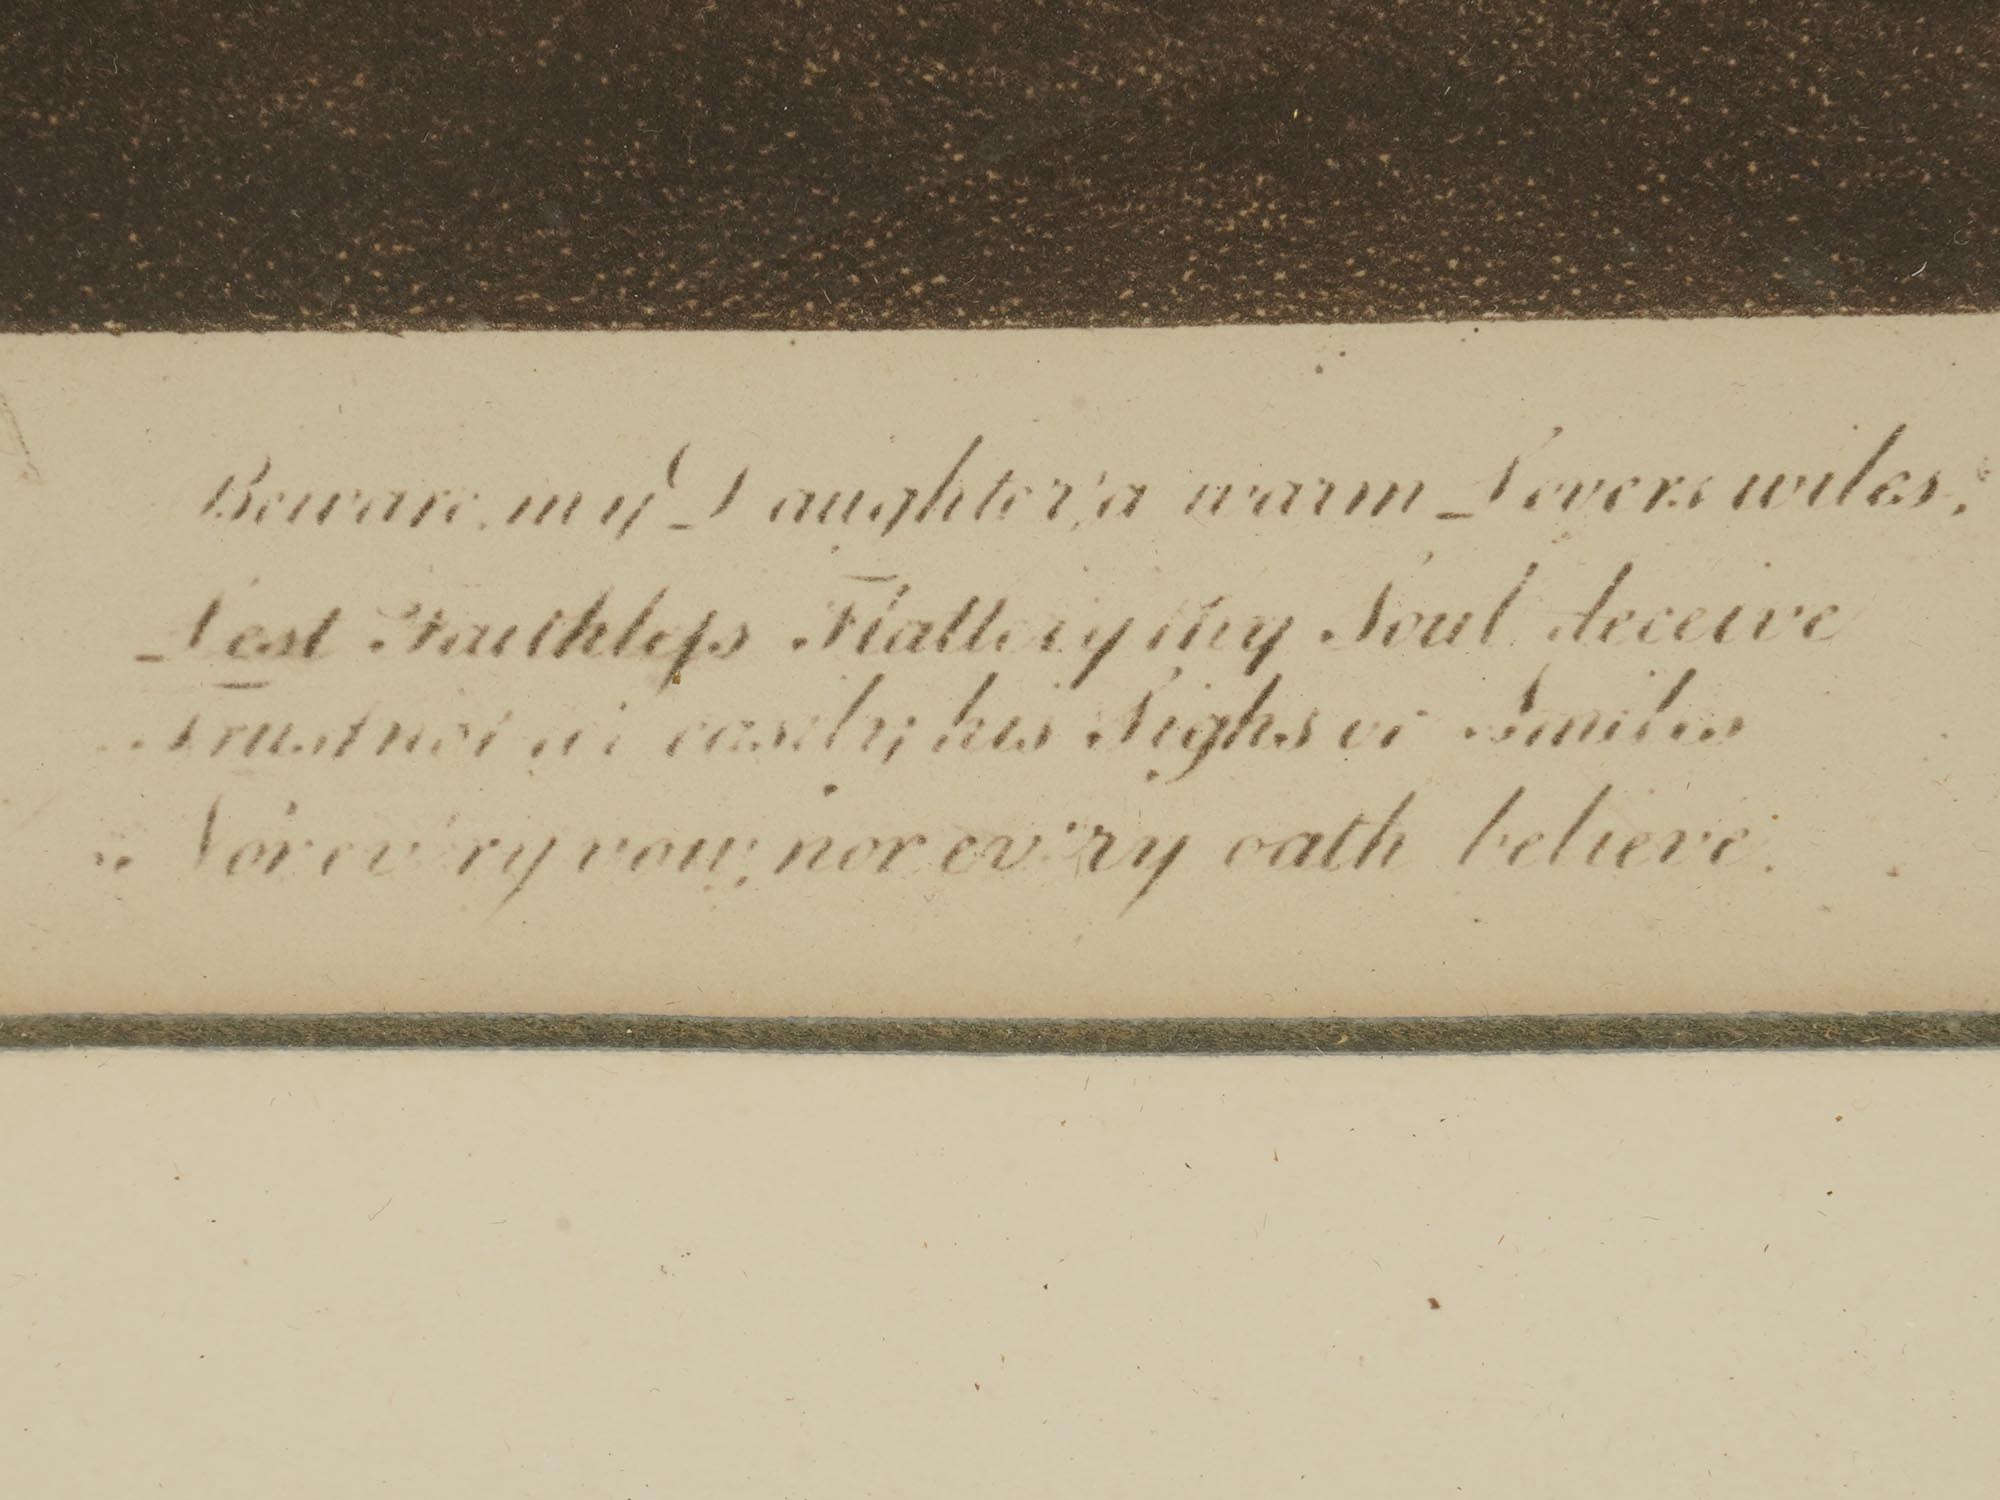 Beware, my Daughter, a warm Lovers wiles,
Lest Faithless Flattery thy Soul deceive
Trust not too easily, his Sighs or Smiles
Nor ev'ry vow, nor ev'ry oath believe.